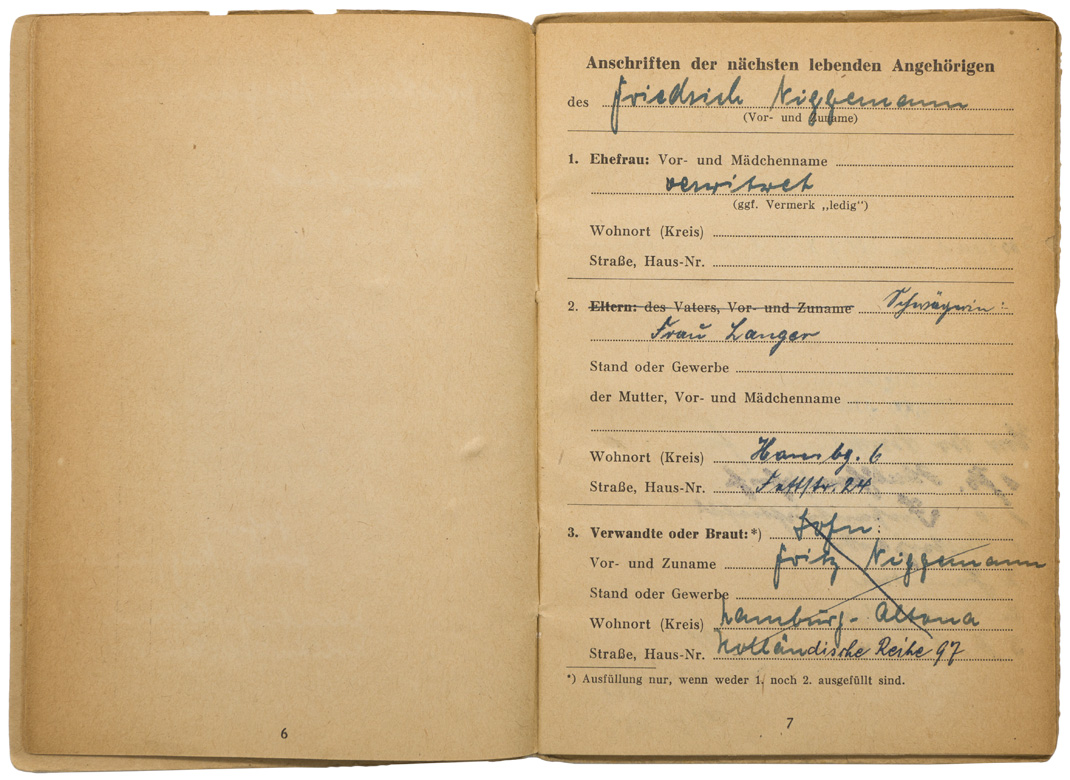 Anschriften der nächsten lebenden Angehörigen
des Friedrich Niggemann
(Vor- und Zuname)
1. Ehefrau: Vor- und Mädchenname
verwitwet
(ggf. Vermerk „ledig“)
Wohnort (Kreis)
Straße, Haus-Nr.
2. Eltern: des Vaters, Vor- und Zuname Schwägerin:
Frau Langer
Stand oder Gewerbe
der Mutter, Vor- und Mädchenname
Wohnort (Kreis) Hambg. 6
Straße, Haus-Nr. Fettstr. 24
3. Verwandte oder Braut:*) Sohn:
Vor- und Zuname Fritz Niggemann
Stand oder Gewerbe
Wohnort (Kreis) Hamburg-Altona
Straße, Haus-Nr. Holländische Reihe 97
*) Ausfüllung nur, wenn weder 1. noch 2. ausgefüllt sind.
6
7